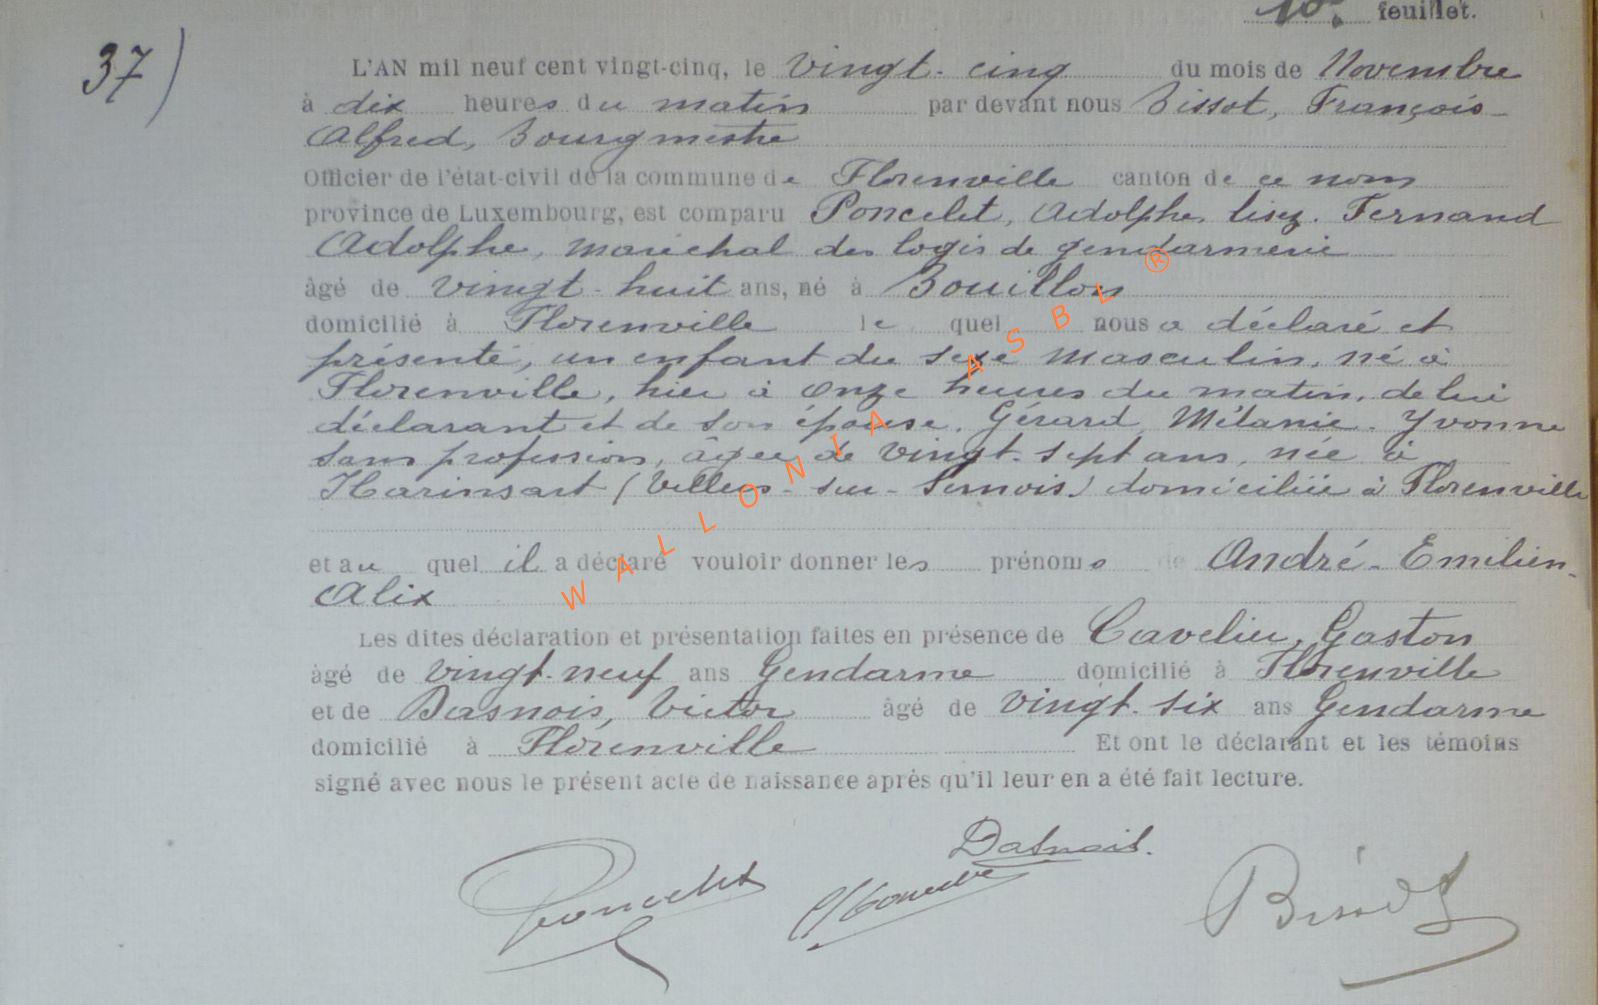 10e feuillet.
37)
L'AN mil neuf cent vingt-cinq, le vingt-cinq du mois de Novembre
à dix heures du matin par devant nous Bissot, François-
Alfred, Bourgmestre
Officier de l'état-civil de la commune de Florenville canton de ce nom
province de Luxembourg, est comparu Poncelet, Adolphe, lisez. Fernand
Adolphe, maréchal des logis de gendarmerie
âgé de vingt-huit ans, né à Bouillon
domicilié à Florenville le quel nous a déclaré et
présenté, un enfant du sexe masculin, né à
Florenville, hier à onze heures du matin, de lui
déclarant et de son épouse, Gérard, Mélanie-Yvonne
sans profession, âgée de vingt-sept ans, née à
Harinsart (Villers-sur-Semois) domiciliée à Florenville
et au quel il a déclaré vouloir donner les prénoms de André-Emilien-
Alix
Les dites déclaration et présentation faites en présence de Cavelier, Gaston
âgé de vingt-neuf ans Gendarme domicilié à Florenville
et de Dasnois, Victor âgé de vingt-six ans Gendarme
domicilié à Florenville Et ont le déclarant et les témoins
signé avec nous le présent acte de naissance après qu'il leur en a été fait lecture.
Dasnois.
Poncelet
Bissot
WALLONIA ASBL ®